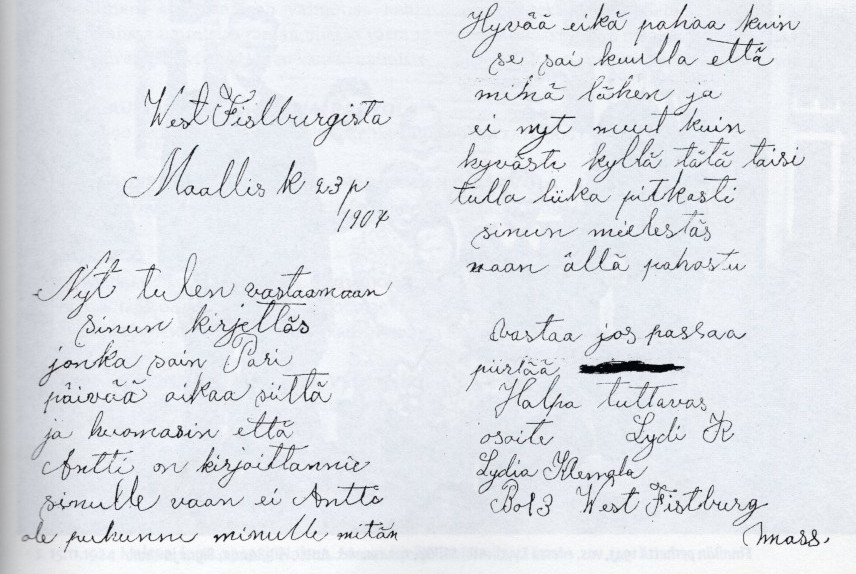 West Fistburgista
Maallis k 23 p
1907
Nyt tulen vastaamaan
sinun kirjettäs
jonka sain Pari
päivää aikaa siittä
ja huomasin että
Antti on kirjoittannu
sinulle vaan ei Antti
ole puhunnu minulle mitän
Hyvää eikä pahaa kuin
se sai kuulla että
minä lähen ja
ei nyt muut kuin
hyvästi kyllä tätä taisi
tulla liika pitkasti
sinun mielestäs
vaan ällä pahastu
vastaa jos passaa
piirtää
Halpa tuttavas
osoite Lydi K
Lydia
Box 3 West Fistburg
Mass.